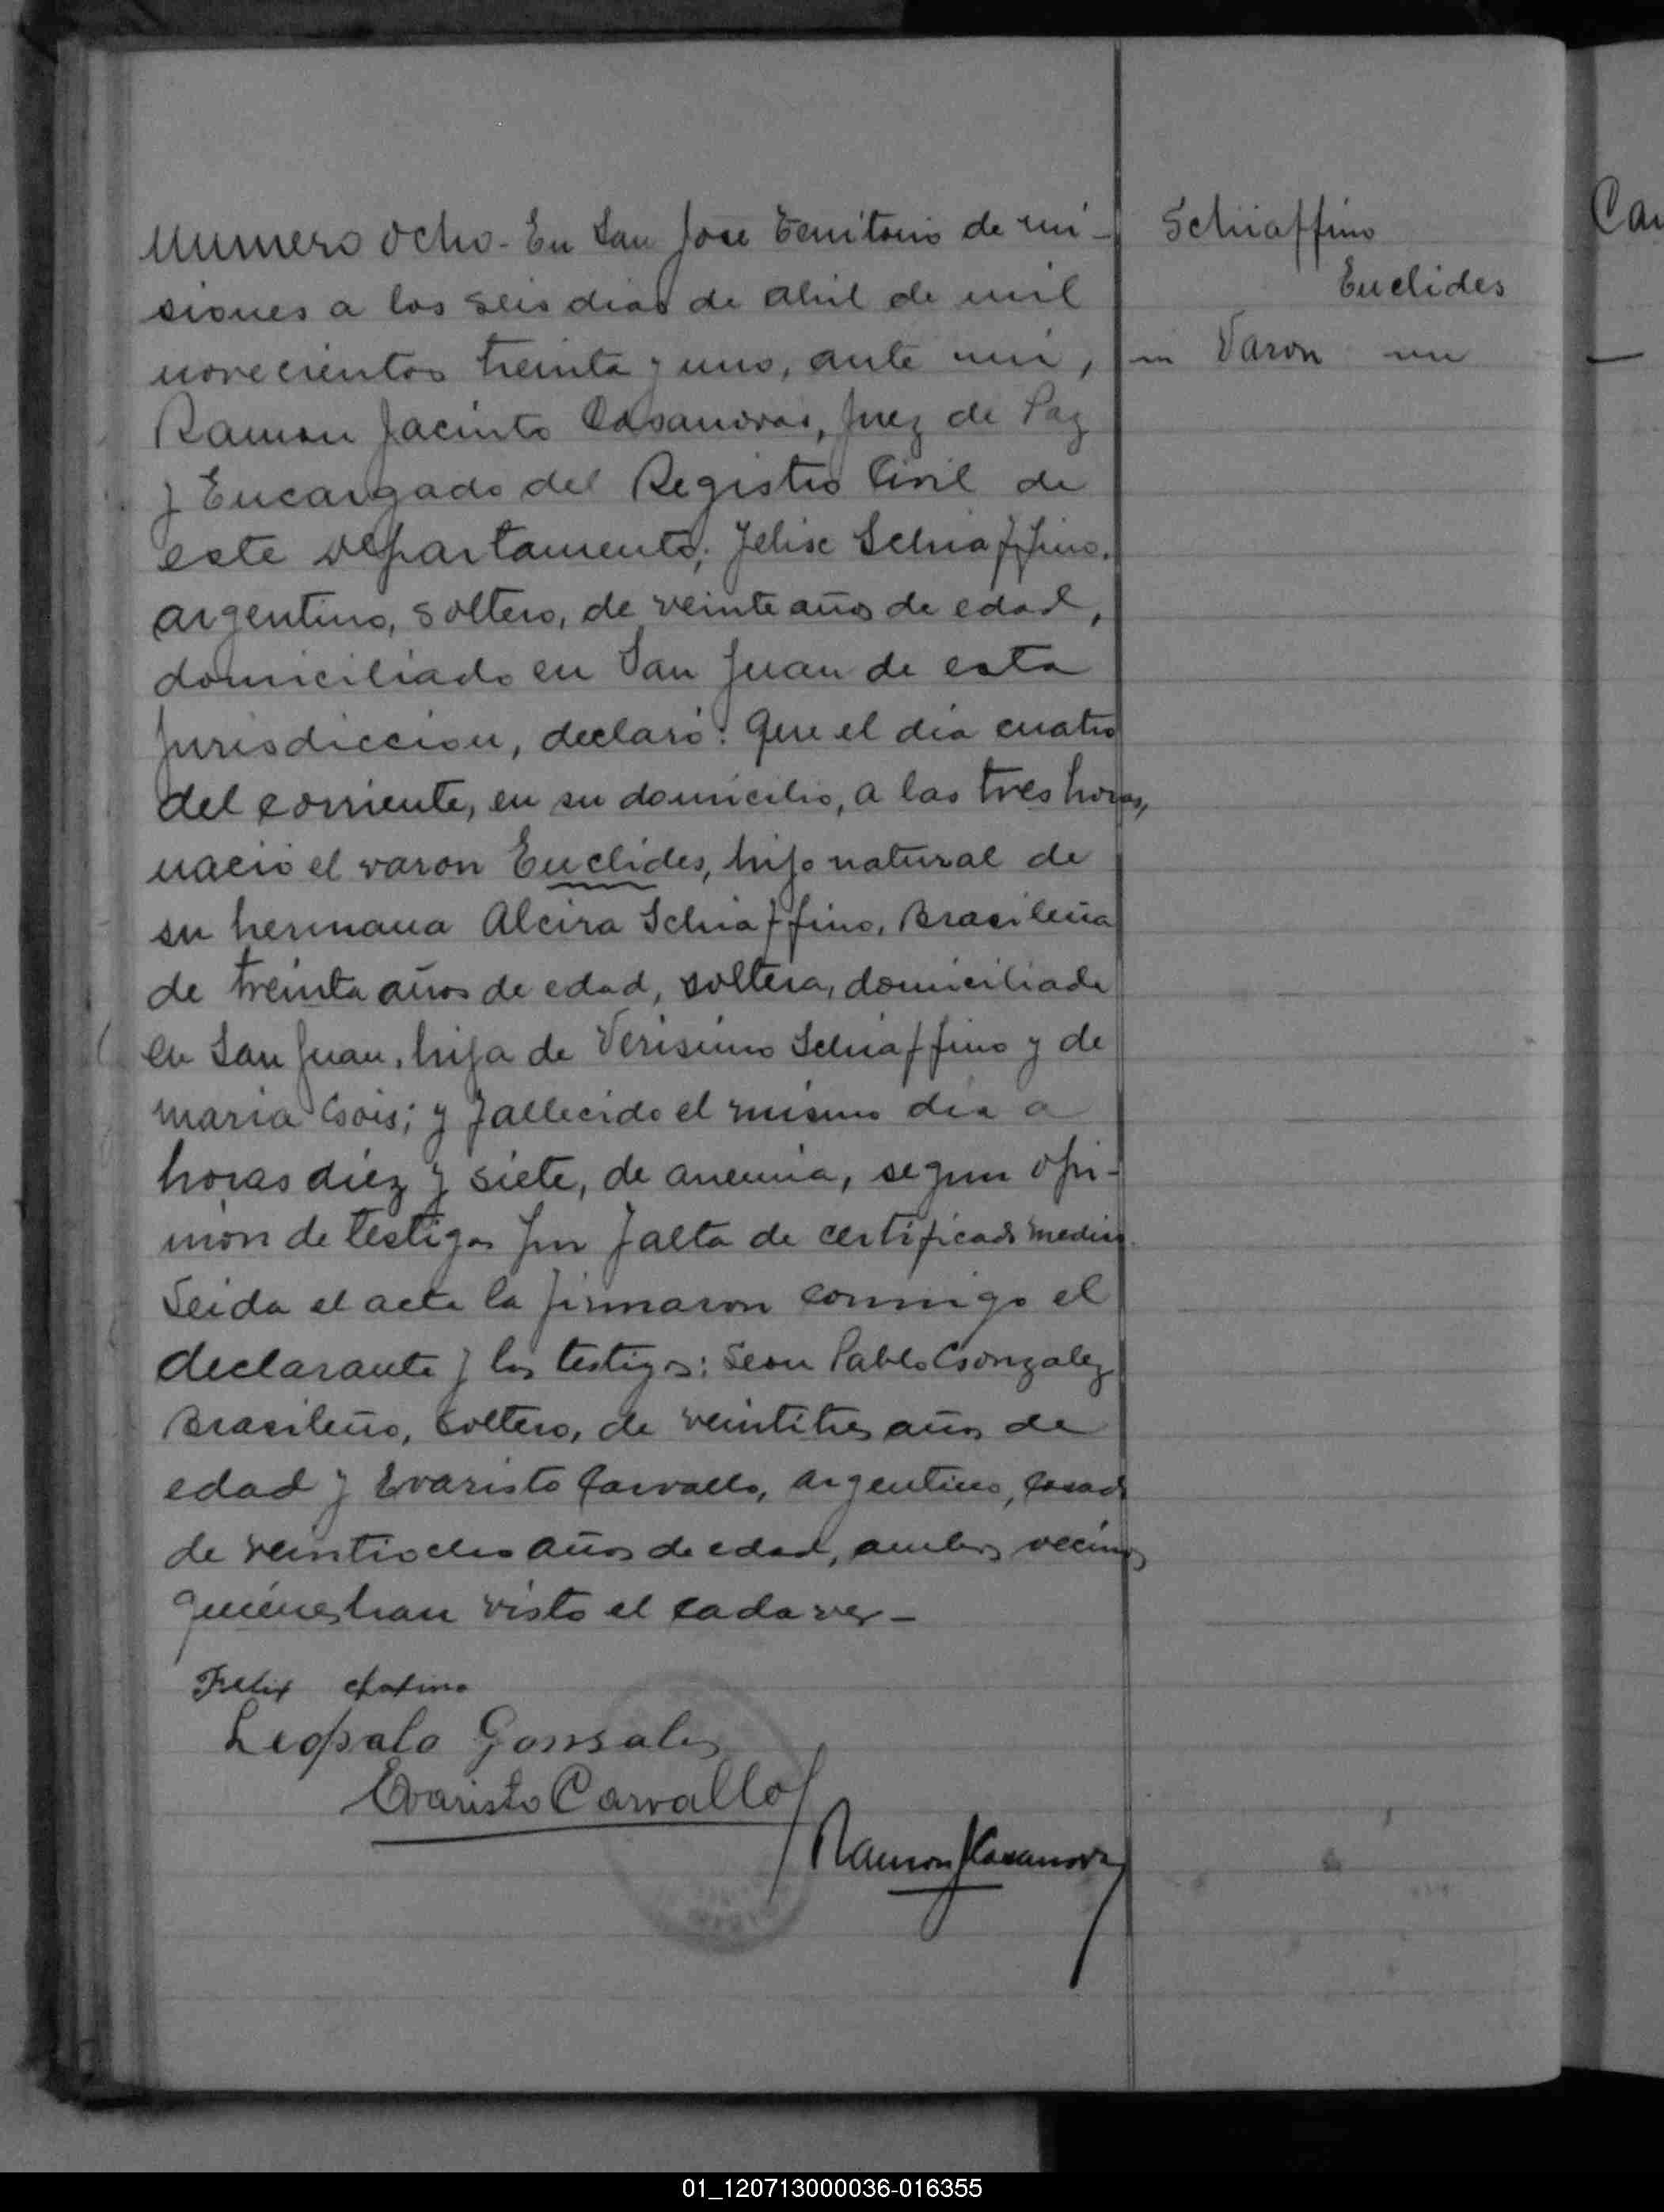 Numero ocho - En San José Territorio de Mi-
siones a los seis dias de abril de mil
novecientos treinta y uno, ante mi,
Ramon Jacinto Casanovas, Juez de Paz
y Encargado del Registro Civil de
este departamento; Felise Schiaffino,
argentino, soltero, de veinte años de edad,
domiciliado en San Juan de esta
jurisdiccion, declaró: Que el dia cuatro
del corriente, en su domicilio, a las tres horas,
nació el varon Euclides, hijo natural de
su hermana Alcira Schiaffino, Brasileña
de treinta años de edad, soltera, domiciliada
en San Juan, hija de Verisimo Schiaffino y de
Maria Gois; y fallecido el mismo dia a
horas diez y siete, de anemia, segun opi-
nion de testigos por falta de certificado medico.
Leida el acta la firmaron conmigo el
declarante y los testigos: Leon Pablo Gonzalez
Brasileño, soltero, de veintitres años de
edad y Evaristo Carvallo, argentino, casado
de veintiocho años de edad, ambos vecinos
quienes han visto el cadaver -
Felix
Leopalo Gonsales
Evaristo Carvallo
Ramon J Casanovas
Schiaffino
Euclides
Varon
Ca
01_120713000036-016355